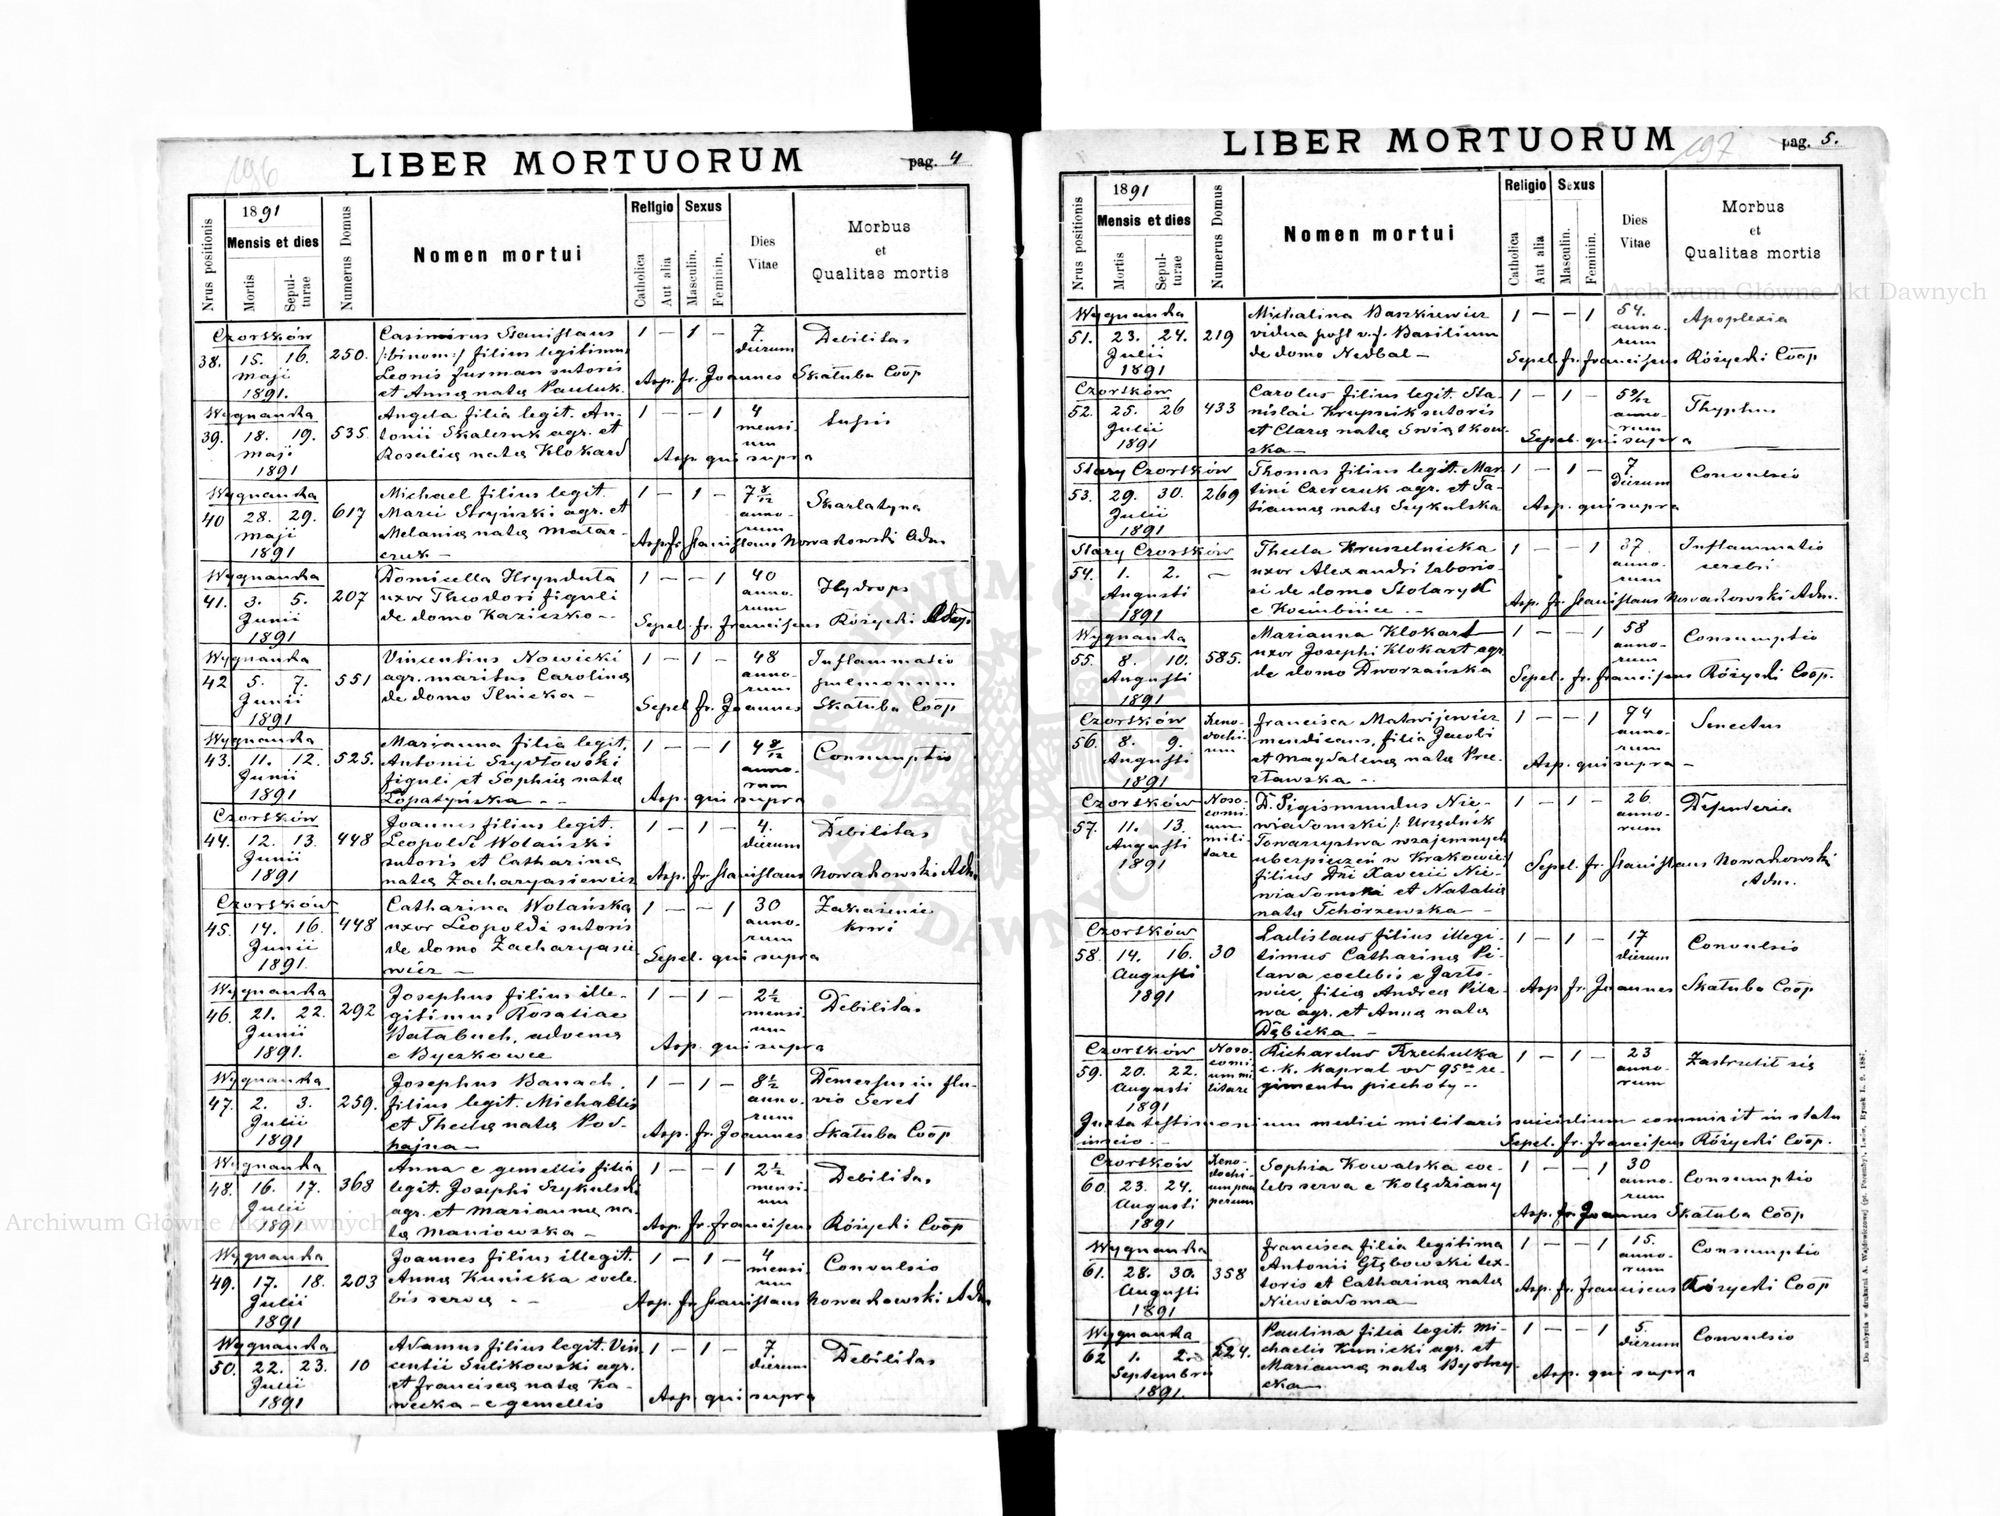 LIBER MORTUORUM
pag. 4
196
Nrus positionis
1891
Mensis et dies
Mortis
Sepulturae
Numerus Domus
Nomen mortui
Religio
Catholica
Aut alia
Sexus
Masculin.
Feminin.
Dies Vitae
Morbus
et
Qualitas mortis
Czortków
38. 15. 16. maji 1891. 250.
Casimirus Stanislaus
/:binom:/ filius legitimus
Leonis Furman sutoris
et Anna nata Pauluk.
1 — 1 — 7 dierum Debilitas
Asp. fr. Joannes Skałuba Coop
Wygnanka
39. 18. 19. maji 1891 535.
Angela filia legit. An-
tonii Skaleruk agr. et
Rosalia nata Klokard
1 — — 1 4 mensium tussis
Asp. qui supra
Wygnanka
40 28. 29. maji 1891 617
Michael filius legit.
Marci Stryński agr. et
Melania nata Matar-
czuk —
1 — 1 — 7 8/12 annorum Skarlatyna
Asp. fr. Stanislaus Nowakowski Adm
Wygnanka
41. 3. 5. Junii 1891 207
Domicella Hrynduta
uxor Theodori figuli
de domo Kaziczko —
1 — — 1 40 annorum Hydrops
Sepel. fr. Franciscus Różycki Coop
Wygnanka
42 5. 7. Junii 1891 551
Vincentius Nowicki
agr. maritus Carolina
de domo Ilnicka —
1 — 1 — 48 annorum Inflammatio
pulmonum
Sepel fr. Joannes Skałuba Coop
Wygnanka
43. 11. 12. Junii 1891 525.
Marianna filia legit.
Antonii Szydłowski
figuli et Sophia nata
Łopatyńska —
1 — — 1 4 8/12 annorum Consumptio
Asp. qui supra
Czortków
44. 12. 13. Junii 1891 448
Joannes filius legit.
Leopoldi Wolański
sutoris et Catharina
nata Zacharyasiewicz
1 — 1 — 4. dierum Debilitas
Asp. fr. Stanislaus Nowakowski Adm
Czortków
45. 14. 16. Junii 1891. 448
Catharina Wolańska
uxor Leopoldi sutoris
de domo Zacharyasie
wicz —
1 — — 1 30 annorum Zakażenie
krwi
Sepel. qui supra
Wygnanka
46. 21. 22. Junii 1891. 292
Josephus filius ille-
gitimus Rosaliae
Bałabuch, advena
e Byczkowce
1 — 1 — 2½ mensium Debilitas
Asp. qui supra
Wygnanka
47. 2. 3. Julii 1891 259.
Josephus Banach,
filius legit. Michaelis
et Thecla nata Pod-
hajna —
1 — 1 — 8½ annorum Demersus in flu-
vio Seret
Asp. fr. Joannes Skałuba Coop
Wygnanka
48. 16. 17. Julii 1891 368
Anna e gemellis filia
legit. Josephi Szykulski
agr. et Marianna na-
ta Maniowska —
1 — — 1 2½ mensium Debilitas
Asp. fr. Franciscus Różycki Coop
Wygnanka
49. 17. 18. Julii 1891 203
Joannes filius illegit.
Anna Kunicka coele-
bis serva —
1 — 1 — 4 mensium Convulsio
Asp. fr. Stanislaus Nowakowski Adm
Wygnanka
50. 22. 23. Julii 1891 10
Adamus filius legit. Vin
centii Sulikowski agr.
et Francisca nata Ka-
wecka — e gemellis
1 — 1 — 7. dierum Debilitas
Asp. qui supra
LIBER MORTUORUM
pag. 5.
197
Nrus positionis
1891
Mensis et dies
Mortis
Sepulturae
Numerus Domus
Nomen mortui
Religio
Catholica
Aut alia
Sexus
Masculin.
Feminin.
Dies Vitae
Morbus
et
Qualitas mortis
Wygnanka
51. 23. 24. Julii 1891 219
Michalina Baszkiewicz
vidua post v. f. Basilium
de domo Nedbal —
1 — — 1 54. annorum Apoplexia
Sepel. fr. Franciscus Różycki Coop
Czortków
52. 25. 26 Julii 1891 433
Carolus filius legit. Sta-
nislai Krupnik sutoris
et Clara nata Swiątkow-
ska —
1 — 1 — 5 9/12 annorum Thyphus
Sepel. qui supra
Stary Czortków
53. 29. 30. Julii 1891 269
Thomas filius legit. Mar
tini Czerczuk agr. et Ta-
tianna nata Szykulska
1 — 1 — 7. dierum Convulsio
Asp. qui supra
Stary Czortków
54. 1. 2. Augusti 1891 —
Thecla Kruszelnicka
uxor Alexandri laborio-
si de domo Stolaryk
e Kociubince —
1 — — 1 37. annorum Inflammatio
cerebri
Asp. fr. Stanislaus Nowakowski Adm.
Wygnanka
55. 8. 10. Augusti 1891 585.
Marianna Klokart
uxor Josephi Klokart agr
de domo Dworzańska
1 — — 1 58 annorum Consumptio
Sepel. fr. Franciscus Różycki Coop.
Czortków
56. 8. 9. Augusti 1891 Xenodochium
Francisca Matwijewicz
mendicans, filia Jacobi
et Magdalena nata Prze-
sławska —
1 — — 1 74 annorum Senectus
Asp. qui supra —
Czortków
57. 11. 13. Augusti 1891 Nosocomium militare
D. Sigismundus Nie-
wiadomski /: Urzędnik
Towarzystwa wzajemnych
ubezpieczeń w Krakowie:/
filius Dni Xaverii Nie-
wiadomski et Natalia
nata Tchórzewska —
1 — 1 — 26. annorum Dysenteria
Sepel. fr. Stanislaus Nowakowski
Adm.
Czortków
58. 14. 16. Augusti 1891 30
Ladislaus filius illegi-
timus Catharina Pi-
lawa coelebis e Jazło-
wiec, filia Andrea Pila-
wa agr. et Anna nata
Dębicka —
1 — 1 — 17 dierum Convulsio
Asp fr. Joannes Skałuba Coop
Czortków
59. 20. 22. Augusti 1891 Nosocomium militare
Richardus Rzechulka
c. k. kapral od 95go re-
gimentu piechoty —
1 — 1 — 23 annorum Zastrzelił się
Juxta testimonium medici militaris suicidium commisit in statu
inscio. —
Sepel. fr. Franciscus Różycki Coop.
Czortków
60. 23. 24. Augusti 1891 Xenodochium pauperum
Sophia Kowalska coe-
lebs serva e Kolędziany
1 — — 1 30 annorum Consumptio
Asp. fr. Joannes Skałuba Coop
Wygnanka
61. 28. 30. Augusti 1891 358
Francisca filia legitima
Antonii Głębowski tex-
toris et Catharina nata
Niewiadoma —
1 — — 1 15. annorum Consumptio
Asp. fr. Franciscus Różycki Coop
Wygnanka
62 1. 2. Septembris 1891. 224.
Paulina filia legit. Mi-
chaelis Kunicki agr. et
Marianna nata Bystrzy-
cka —
1 — — 1 5. dierum Convulsio
Asp. qui supra
Do nabycia w drukarni A. Wajdowiczowej (gr. Przembył), Lwów, Rynek L. 9. 1887.
Archiwum Główne Akt Dawnych
Archiwum Główne Akt Dawnych
ARCHIWUM GŁÓWNE AKT DAWNYCH